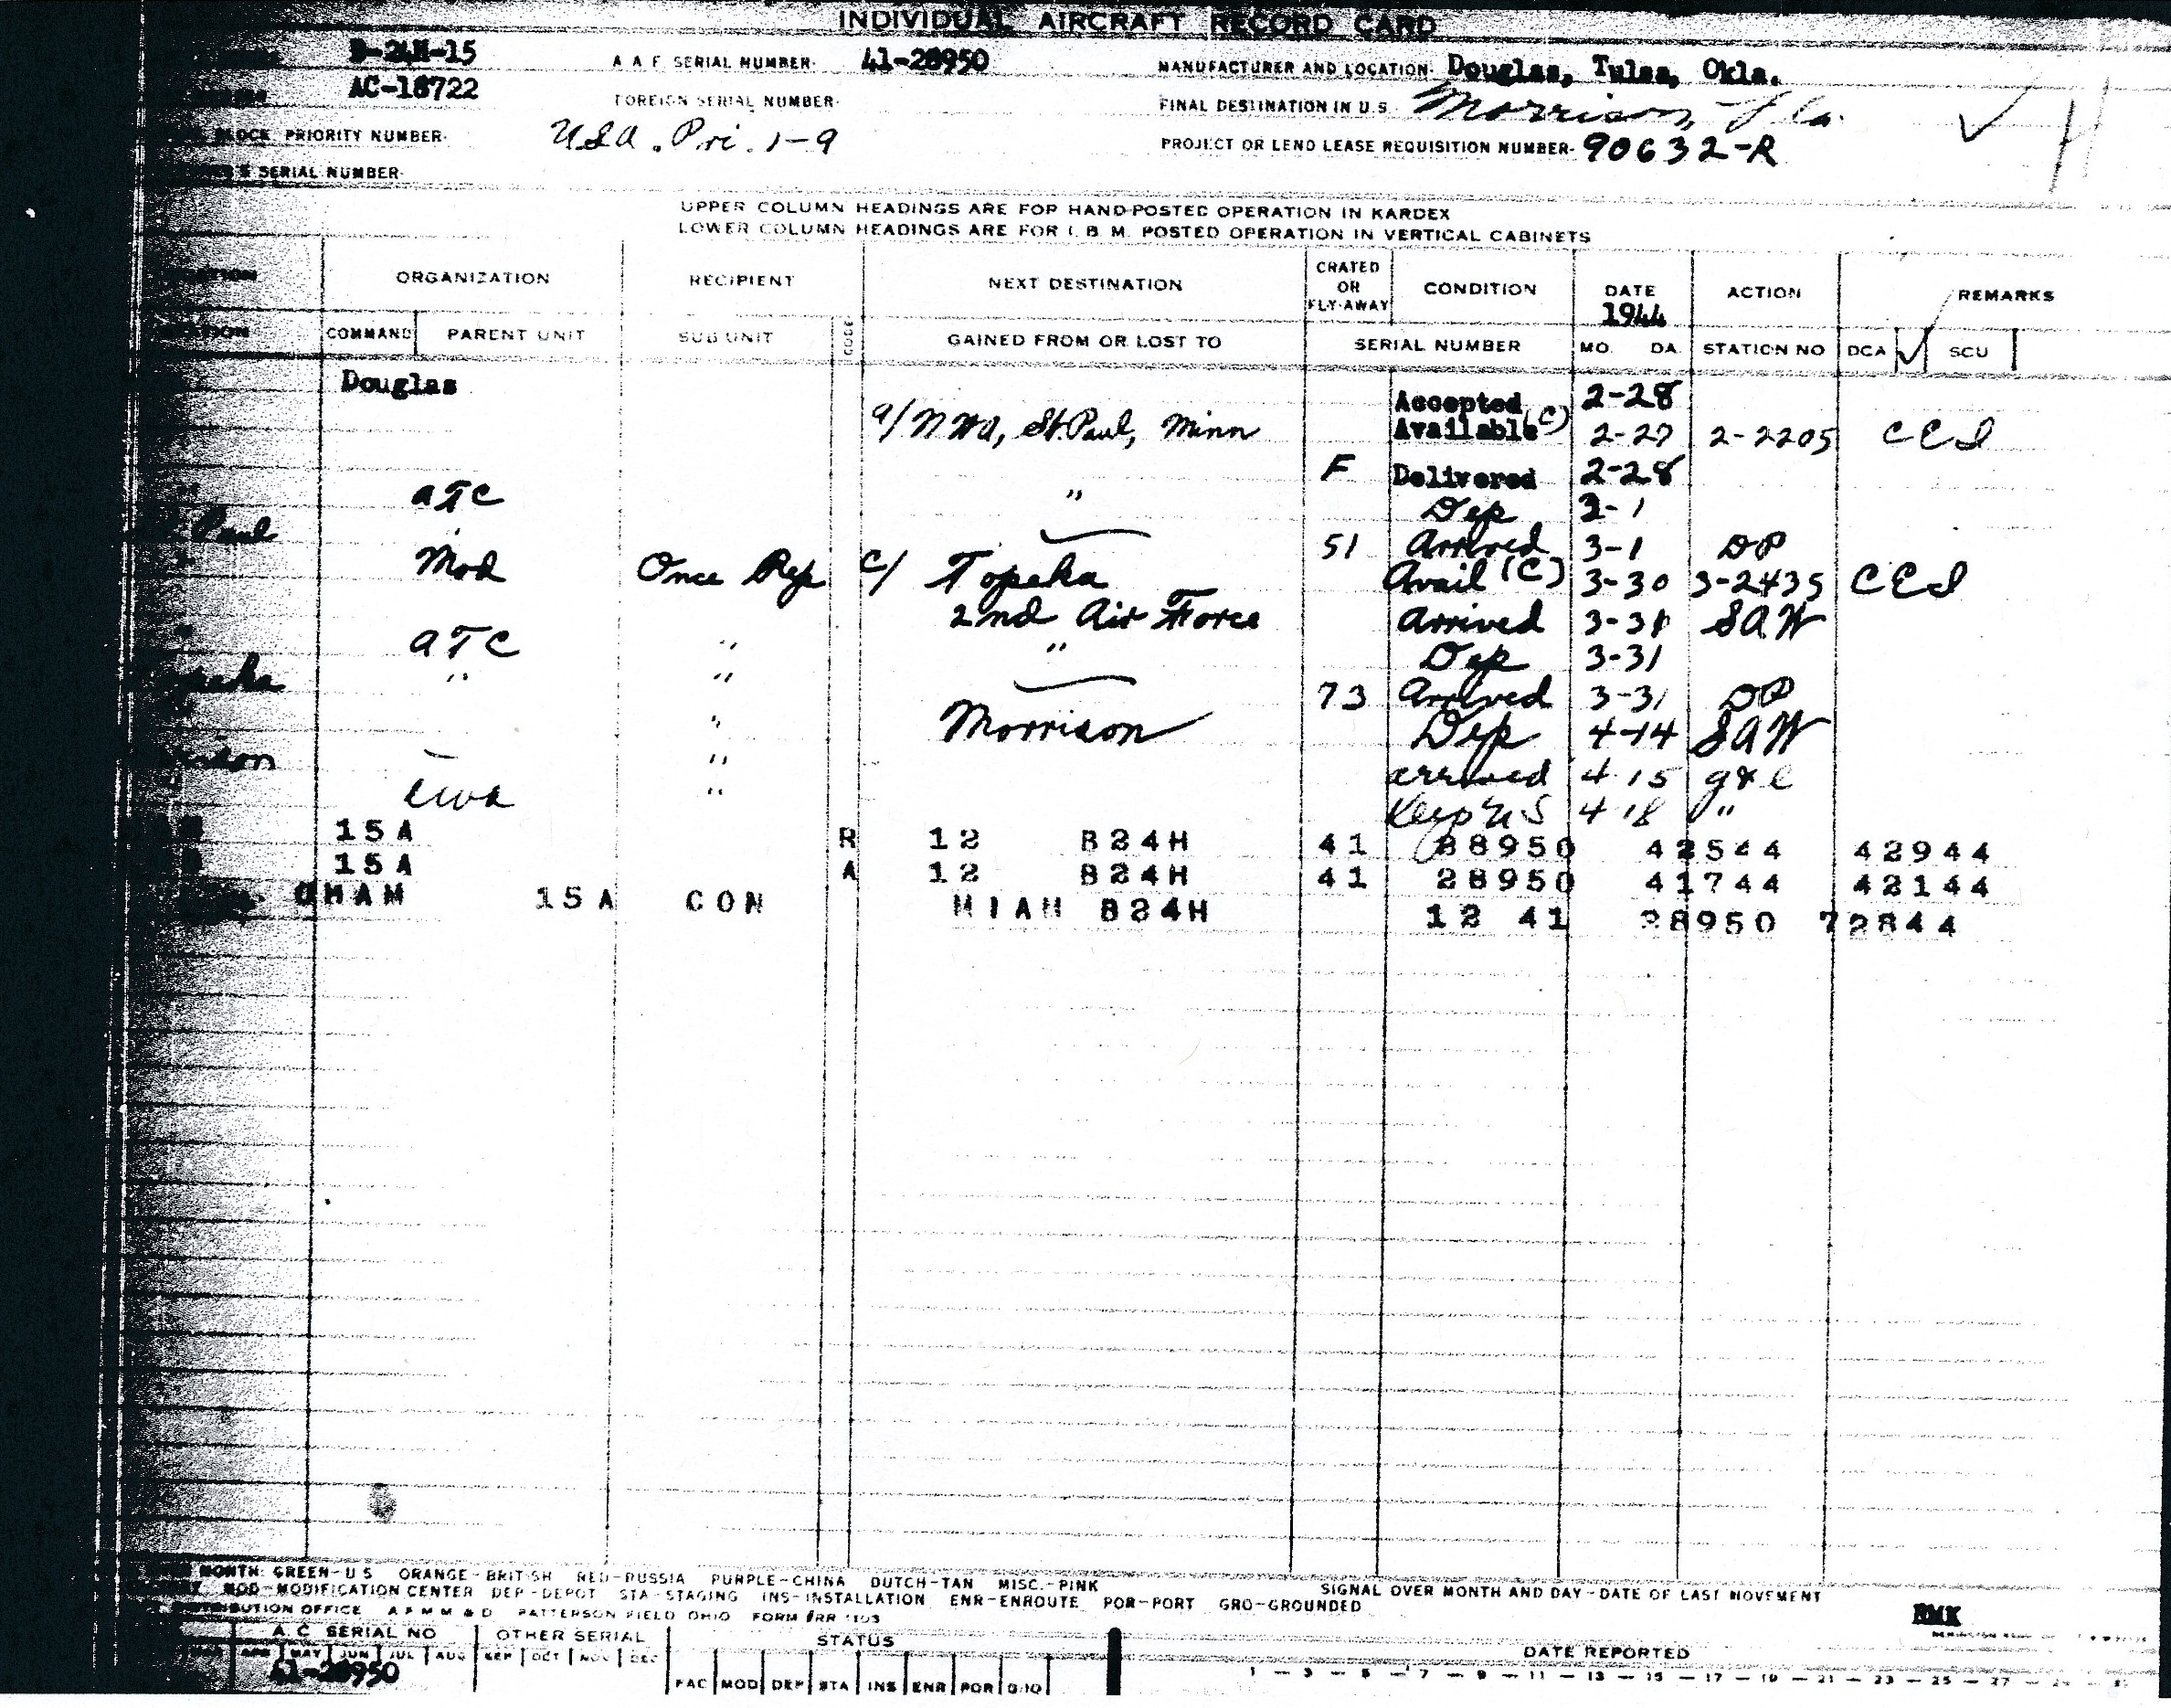 INDIVIDUAL AIRCRAFT RECORD CARD
B-24H-15 A A F SERIAL NUMBER- 41-28950 MANUFACTURER AND LOCATION- Douglas, Tulsa, Okla.
AC-18722 FOREIGN SERIAL NUMBER- FINAL DESTINATION IN U.S. Morrison, Fla.
BLOCK PRIORITY NUMBER- USA. Pri. 1-9 PROJECT OR LEND LEASE REQUISITION NUMBER- 90632-R
SERIAL NUMBER-
UPPER COLUMN HEADINGS ARE FOR HAND-POSTED OPERATION IN KARDEX
LOWER COLUMN HEADINGS ARE FOR I. B. M. POSTED OPERATION IN VERTICAL CABINETS
ORGANIZATION RECIPIENT NEXT DESTINATION CRATED OR FLY-AWAY CONDITION DATE 1944 ACTION REMARKS
COMMAND PARENT UNIT SUB UNIT CODE GAINED FROM OR LOST TO SERIAL NUMBER MO. DA. STATION NO DCA SCU
Douglas Accepted 2-28
a/ NWA, St. Paul, Minn Available (C) 2-27 2-2205 CCS
F Delivered 2-28
" ATC " Dep 3-1
Paul 51 Arrived 3-1 DP
" Mod Once Rep c/ Topeka Avail (C) 3-30 3-2435 CCS
2nd Air Force Arrived 3-31 SAW
" ATC " " Dep 3-31
Topeka " " 73 Arrived 3-31 DP
" Morrison Dep 4-14 SAW
" arrived 4-15
" Dep US 4-18 "
15A R 12 B24H 41 28950 42544 42944
15A A 12 B24H 41 28950 41744 42144
GHAM 15A CON MIAM B24H 12 41 28950 72844
MONTH: GREEN-U S ORANGE-BRITISH RED-RUSSIA PURPLE-CHINA DUTCH-TAN MISC.-PINK
MOD-MODIFICATION CENTER DEP-DEPOT STA-STAGING INS-INSTALLATION ENR-ENROUTE POR-PORT GRO-GROUNDED SIGNAL OVER MONTH AND DAY-DATE OF LAST MOVEMENT
OFFICE A F M M & D PATTERSON FIELD OHIO FORM #RR 1103 RMK
A.C. SERIAL NO OTHER SERIAL STATUS DATE REPORTED
APR MAY JUN JUL AUG SEP OCT NOV DEC
41-28950 FAC MOD DEP STA INS ENR POR GRO 1 - 3 - 5 - 7 - 9 - 11 - 13 - 15 - 17 - 19 - 21 - 23 - 25 - 27 - 29 - 31